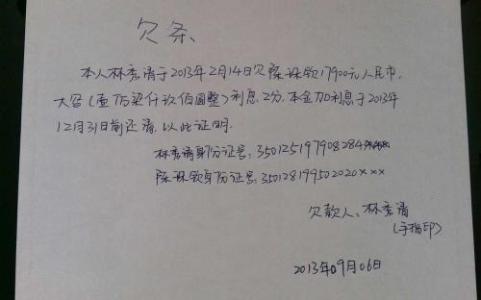 欠条
本人林秀清于2013年2月14日欠陈咏钦17900元人民币.
大写(壹万柒仟玖佰圆整)利息2分.本金加利息于2013年
12月31日前还清.以此证明.
林秀清身份证号:350125197908284
陈咏钦身份证号:350128199502020×××
欠款人:林秀清
(手指印)
2013年09月06日